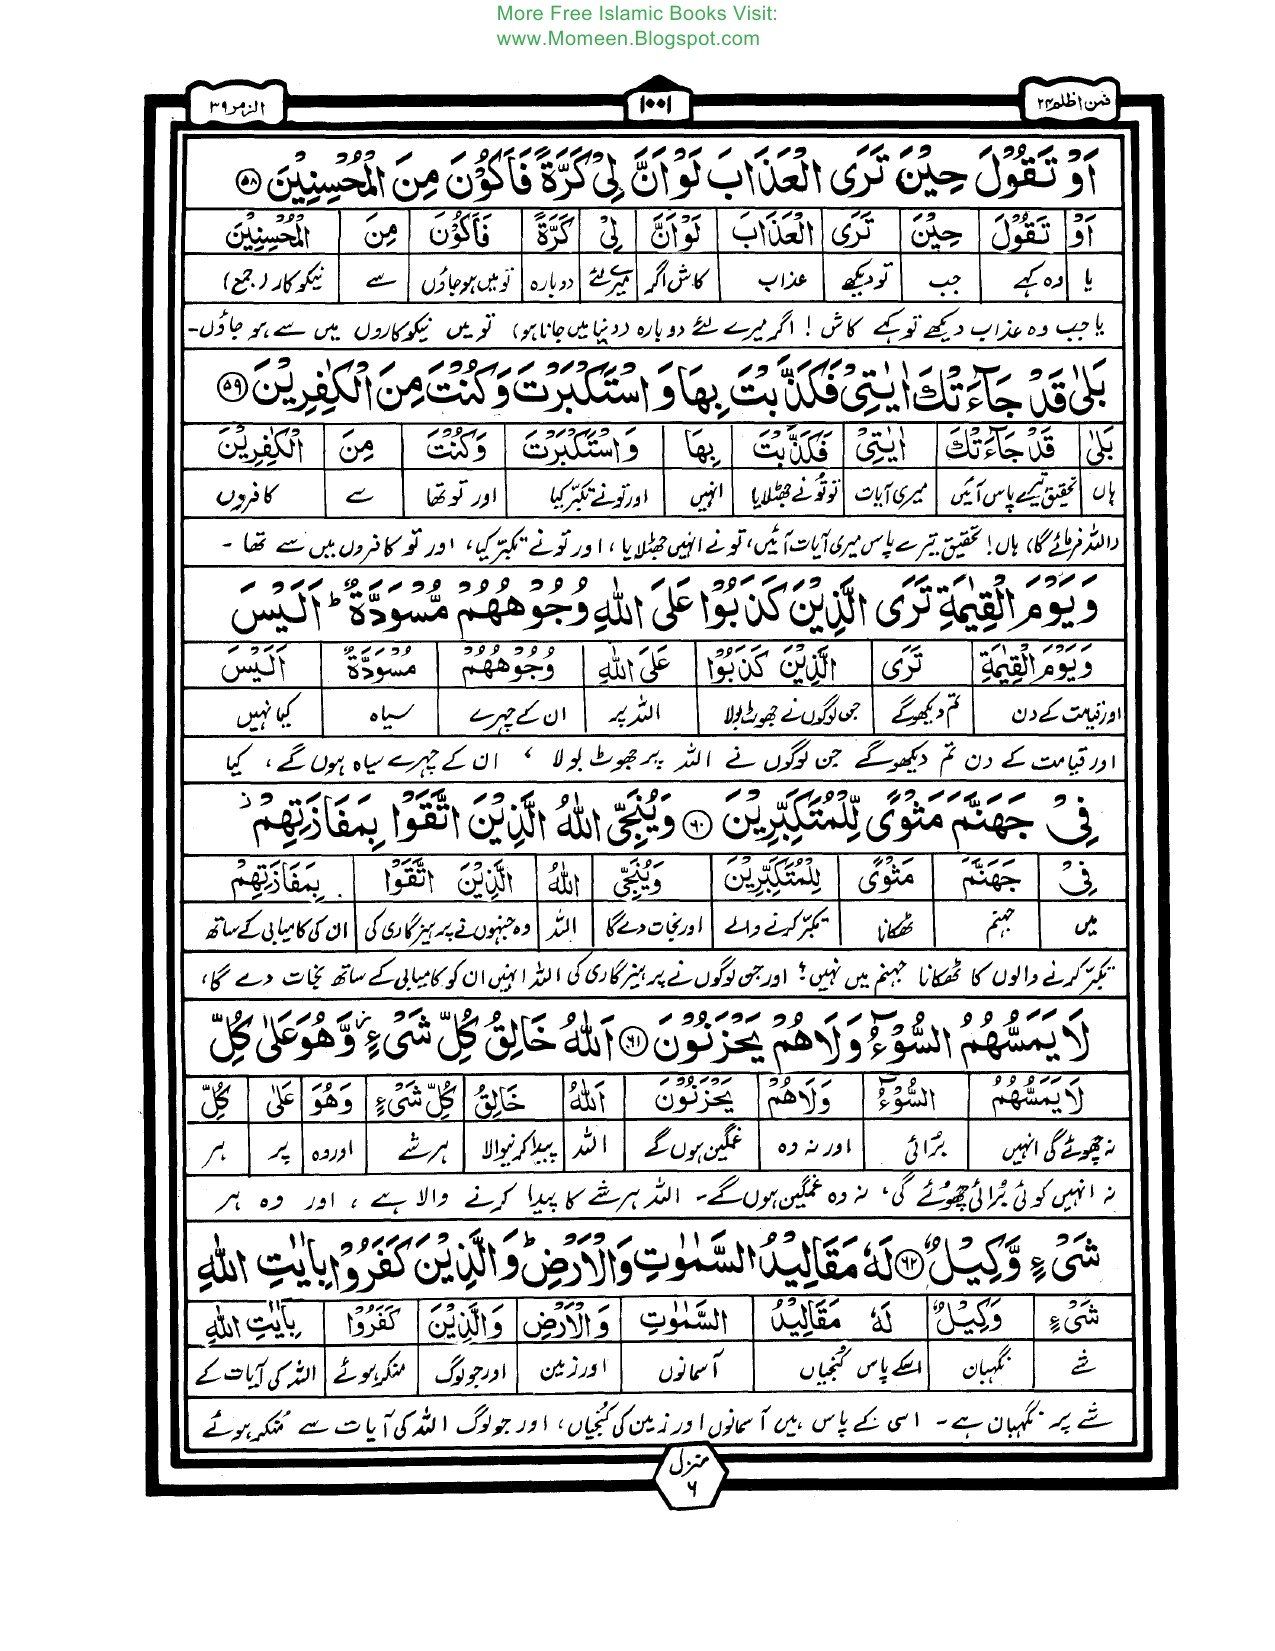 More Free Islamic Books Visit:
www.Momeen.Blogspot.com
فمن اظلم ۲۴
۱۰۰۱
الزمر ۳۹
اَوْ تَقُوْلَ حِيْنَ تَرَى الْعَذَابَ لَوْ اَنَّ لِيْ كَرَّةً فَاَكُوْنَ مِنَ الْمُحْسِنِيْنَ ۵۸
اَوْ تَقُوْلَ حِيْنَ تَرَى الْعَذَابَ لَوْ اَنَّ لِيْ كَرَّةً فَاَكُوْنَ مِنَ الْمُحْسِنِيْنَ
یا وہ کہے جب تو دیکھے عذاب کاش اگر میرے لئے دوبارہ تو میں ہو جاؤں سے نیکوکار (جمع)
یا جب وہ عذاب دیکھے تو کہے کاش! اگر میرے لئے دوبارہ (دنیا میں جانا ہو) تو میں نیکوکاروں میں سے ہو جاؤں-
بَلٰى قَدْ جَآءَتْكَ اٰيٰتِيْ فَكَذَّبْتَ بِهَا وَ اسْتَكْبَرْتَ وَكُنْتَ مِنَ الْكٰفِرِيْنَ ۵۹
بَلٰى قَدْ جَآءَتْكَ اٰيٰتِيْ فَكَذَّبْتَ بِهَا وَاسْتَكْبَرْتَ وَكُنْتَ مِنَ الْكٰفِرِيْنَ
ہاں تحقیق تیرے پاس آئیں میری آیات تو تُو نے جھٹلایا انہیں اور تو نے تکبر کیا اور تو تھا سے کافروں
(اللہ فرمائے گا) ہاں! تحقیق تیرے پاس میری آیات آئیں، تو نے انہیں جھٹلایا، اور تو نے تکبر کیا، اور تو کافروں میں سے تھا -
وَيَوْمَ الْقِيٰمَةِ تَرَى الَّذِيْنَ كَذَبُوْا عَلَى اللّٰهِ وُجُوْهُهُمْ مُّسْوَدَّةٌ ؕ اَلَيْسَ
وَيَوْمَ الْقِيٰمَةِ تَرَى الَّذِيْنَ كَذَبُوْا عَلَى اللّٰهِ وُجُوْهُهُمْ مُسْوَدَّةٌ اَلَيْسَ
اور قیامت کے دن تم دیکھو گے جن لوگوں نے جھوٹ بولا اللہ پر ان کے چہرے سیاہ کیا نہیں
اور قیامت کے دن تم دیکھو گے جن لوگوں نے اللہ پر جھوٹ بولا ، ان کے چہرے سیاہ ہوں گے، کیا
فِيْ جَهَنَّمَ مَثْوًى لِّلْمُتَكَبِّرِيْنَ ۶۰ وَيُنَجِّي اللّٰهُ الَّذِيْنَ اتَّقَوْا بِمَفَازَتِهِمْ ز
فِيْ جَهَنَّمَ مَثْوًى لِلْمُتَكَبِّرِيْنَ وَيُنَجِّي اللّٰهُ الَّذِيْنَ اتَّقَوْا بِمَفَازَتِهِمْ
میں جہنم ٹھکانا تکبر کرنے والے اور نجات دے گا اللہ وہ جنہوں نے پرہیزگاری کی ان کی کامیابی کے ساتھ
تکبر کرنے والوں کا ٹھکانا جہنم میں نہیں؟ اور جن لوگوں نے پرہیزگاری کی اللہ انہیں ان کو کامیابی کے ساتھ نجات دے گا،
لَا يَمَسُّهُمُ السُّوْٓءُ وَلَا هُمْ يَحْزَنُوْنَ ۶۱ اَللّٰهُ خَالِقُ كُلِّ شَيْءٍ ز وَّهُوَ عَلٰى كُلِّ
لَا يَمَسُّهُمُ السُّوْٓءُ وَلَا هُمْ يَحْزَنُوْنَ اَللّٰهُ خَالِقُ كُلِّ شَيْءٍ وَهُوَ عَلٰى كُلِّ
نہ چھوئے گی انہیں برُائی اور نہ وہ غمگین ہوں گے اللہ پیدا کرنیوالا ہر شے اور وہ پر ہر
نہ انہیں کوئی بُرائی چھوئے گی، نہ وہ غمگین ہوں گے- اللہ ہر شے کا پیدا کرنے والا ہے ، اور وہ ہر
شَيْءٍ وَّكِيْلٌ ۶۲ لَهٗ مَقَالِيْدُ السَّمٰوٰتِ وَالْاَرْضِ ؕ وَالَّذِيْنَ كَفَرُوْا بِاٰيٰتِ اللّٰهِ
شَيْءٍ وَكِيْلٌ لَهٗ مَقَالِيْدُ السَّمٰوٰتِ وَالْاَرْضِ وَالَّذِيْنَ كَفَرُوْا بِاٰيٰتِ اللّٰهِ
شے نگہبان اسکے پاس کُنجیاں آسمانوں اور زمین اور جو لوگ منکر ہوئے اللہ کی آیات کے
شے پر نگہبان ہے- اسی کے پاس ہیں آسمانوں اور زمین کی کنجیاں، اور جو لوگ اللہ کی آیات سے مُنکر ہوئے
منزل ۶